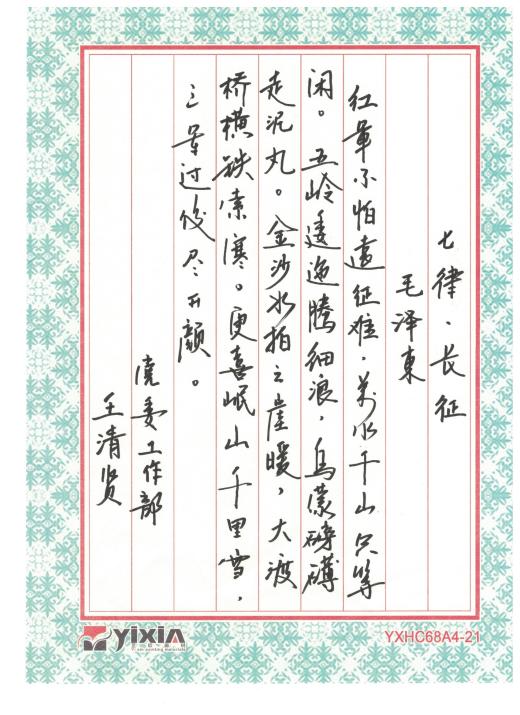 七律·长征
毛泽東
红军不怕遠征难，万水千山只等
闲。五岭逶迤腾细浪，乌蒙磅礴
走泥丸。金沙水拍云崖暖，大渡
桥横铁索寒。更喜岷山千里雪，
三军过後尽开颜。
党委工作部
王清贤
YIXIN
YXHC68A4-21